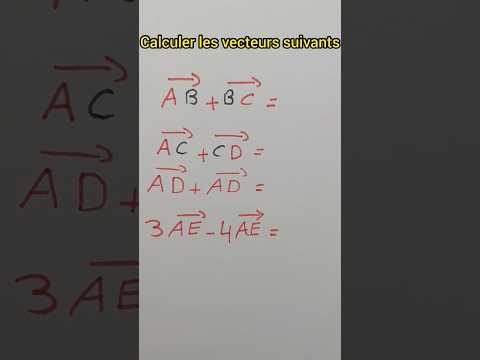 Calculer les vecteurs suivants
AB + BC =
AC + CD =
AD + AD =
3AE - 4AE =
AC
AD
3AE